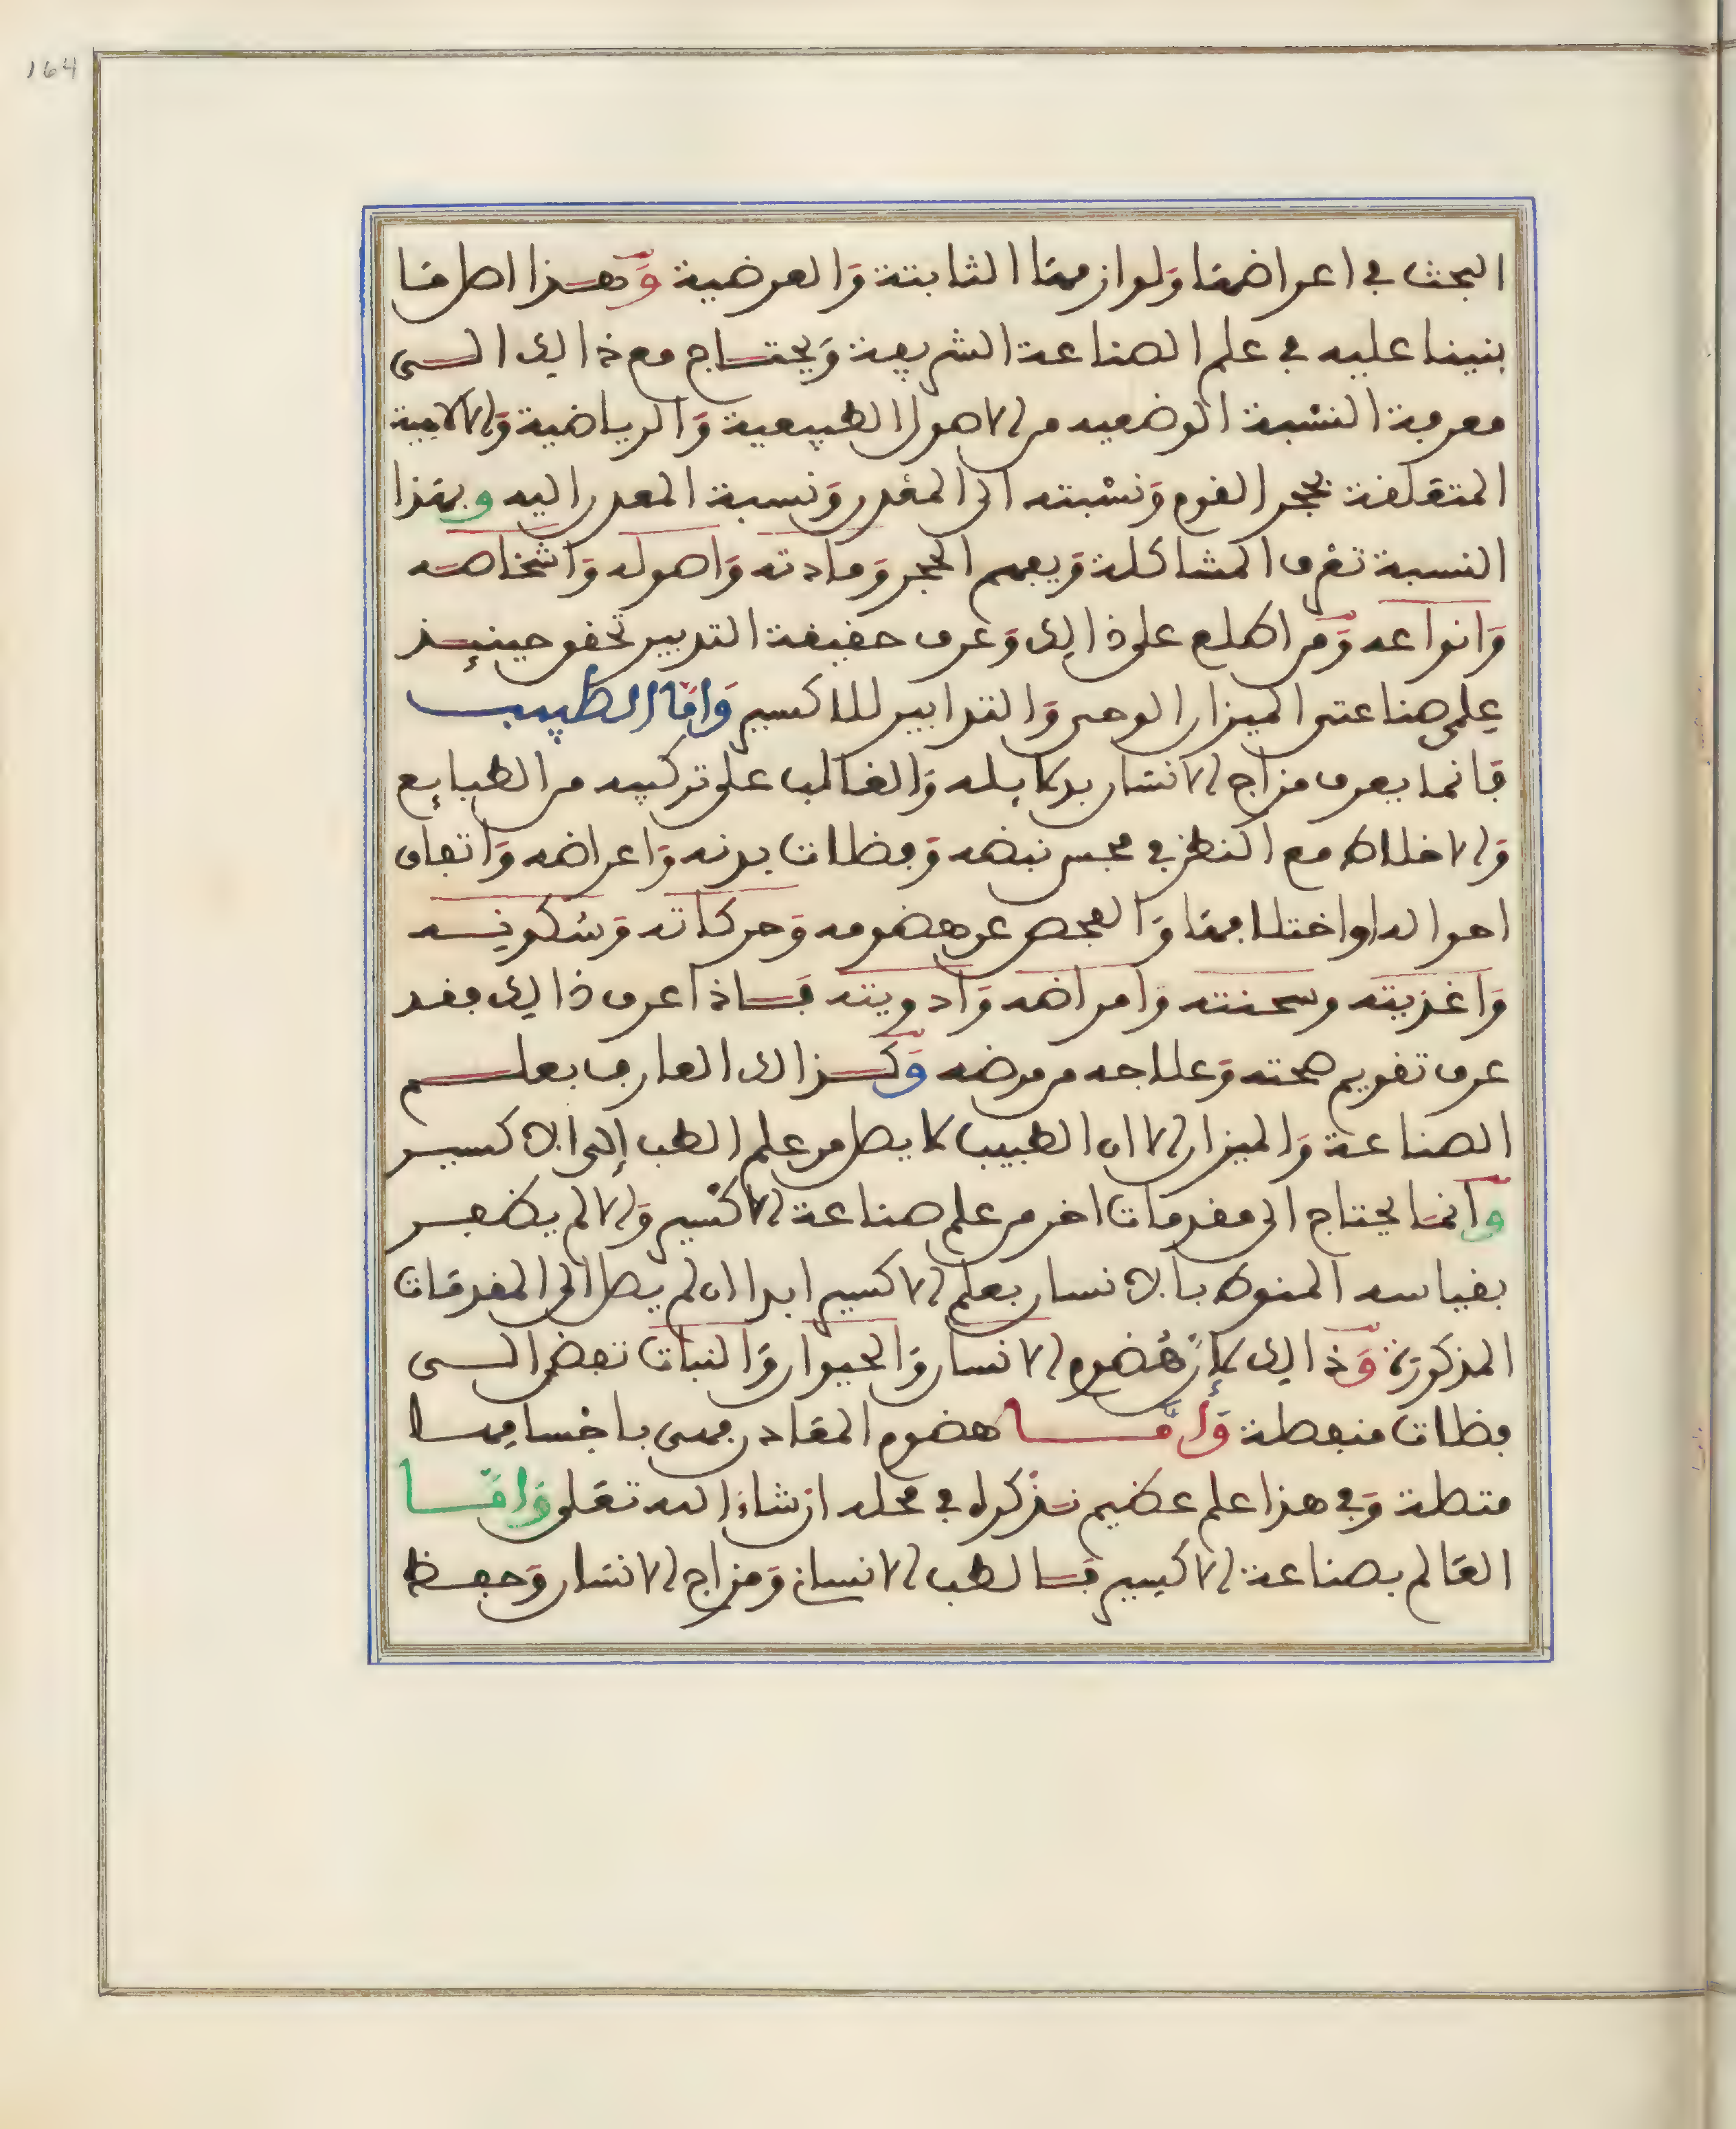 164
البحث في اعراضها ولوازمها الثابتة والعرضية وهذا اصل ما
بنينا عليه في علم الصناعة الشريفة ويحتاج مع ذالك الى
معرفة النسبة الوضعيه من الاصول الطبيعية والرياضية والالاهية
المتعلقة بحجر القوم ونسبته الى المعدن ونسبة المعدن اليه وبهذا
النسبة تعرف المشاكلة ويفهم الحجر ومادته واصوله واشخاصه
وانواعه ومن اطلع على ذالك وعرف حقيقة التدبير تحقق حينيذ
علمي صناعتي الميزان الوحي والتدابير للاكسير واما الطبيب
فانما يعرف مزاج الانسان بدلايله والغالب على تركيبه من الطبايع
والاخلاط مع النظر في مجس نبضه وفضلات بدنه واعراضه واتفاق
احواله او اختلافها والفحص عن هضومه وحركاته وسكونه
واغذيته وسحنته وامراضه وادويته فاذا عرف ذالك فقد
عرف تقويم صحته وعلاجه من مرضه وكذالك العارف بعلم
الصناعة والميزان الا ان الطبيب لا يصل من علم الطب إلى الاكسير
وانما يحتاج الى مقدمات اخر من علم صناعة الاكسير والا لم يظفر
بقياسه المنوط بالانسان بعلم الاكسير ابدا ان لم يصل الى المقدمات
المذكورة وذالك لأن هضوم الانسان والحيوان والنبات تفضي الى
فضلات منفصلة وأما هضوم المعادن فهي باجسامها
متصلة وفي هذا علم عظيم نذكره في محله ان شاء الله تعلى واما
العالم بصناعة الاكسير فالطب الانسان ومزاج الانسان وحفظ